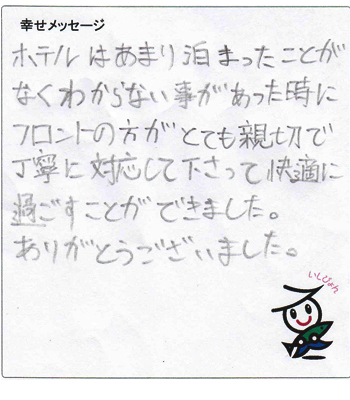 幸せメッセージ
ホテルはあまり泊まったことが
なくわからない事があった時に
フロントの方がとても親切で
丁寧に対応して下さって快適に
過ごすことができました。
ありがとうございました。
いしぴょん